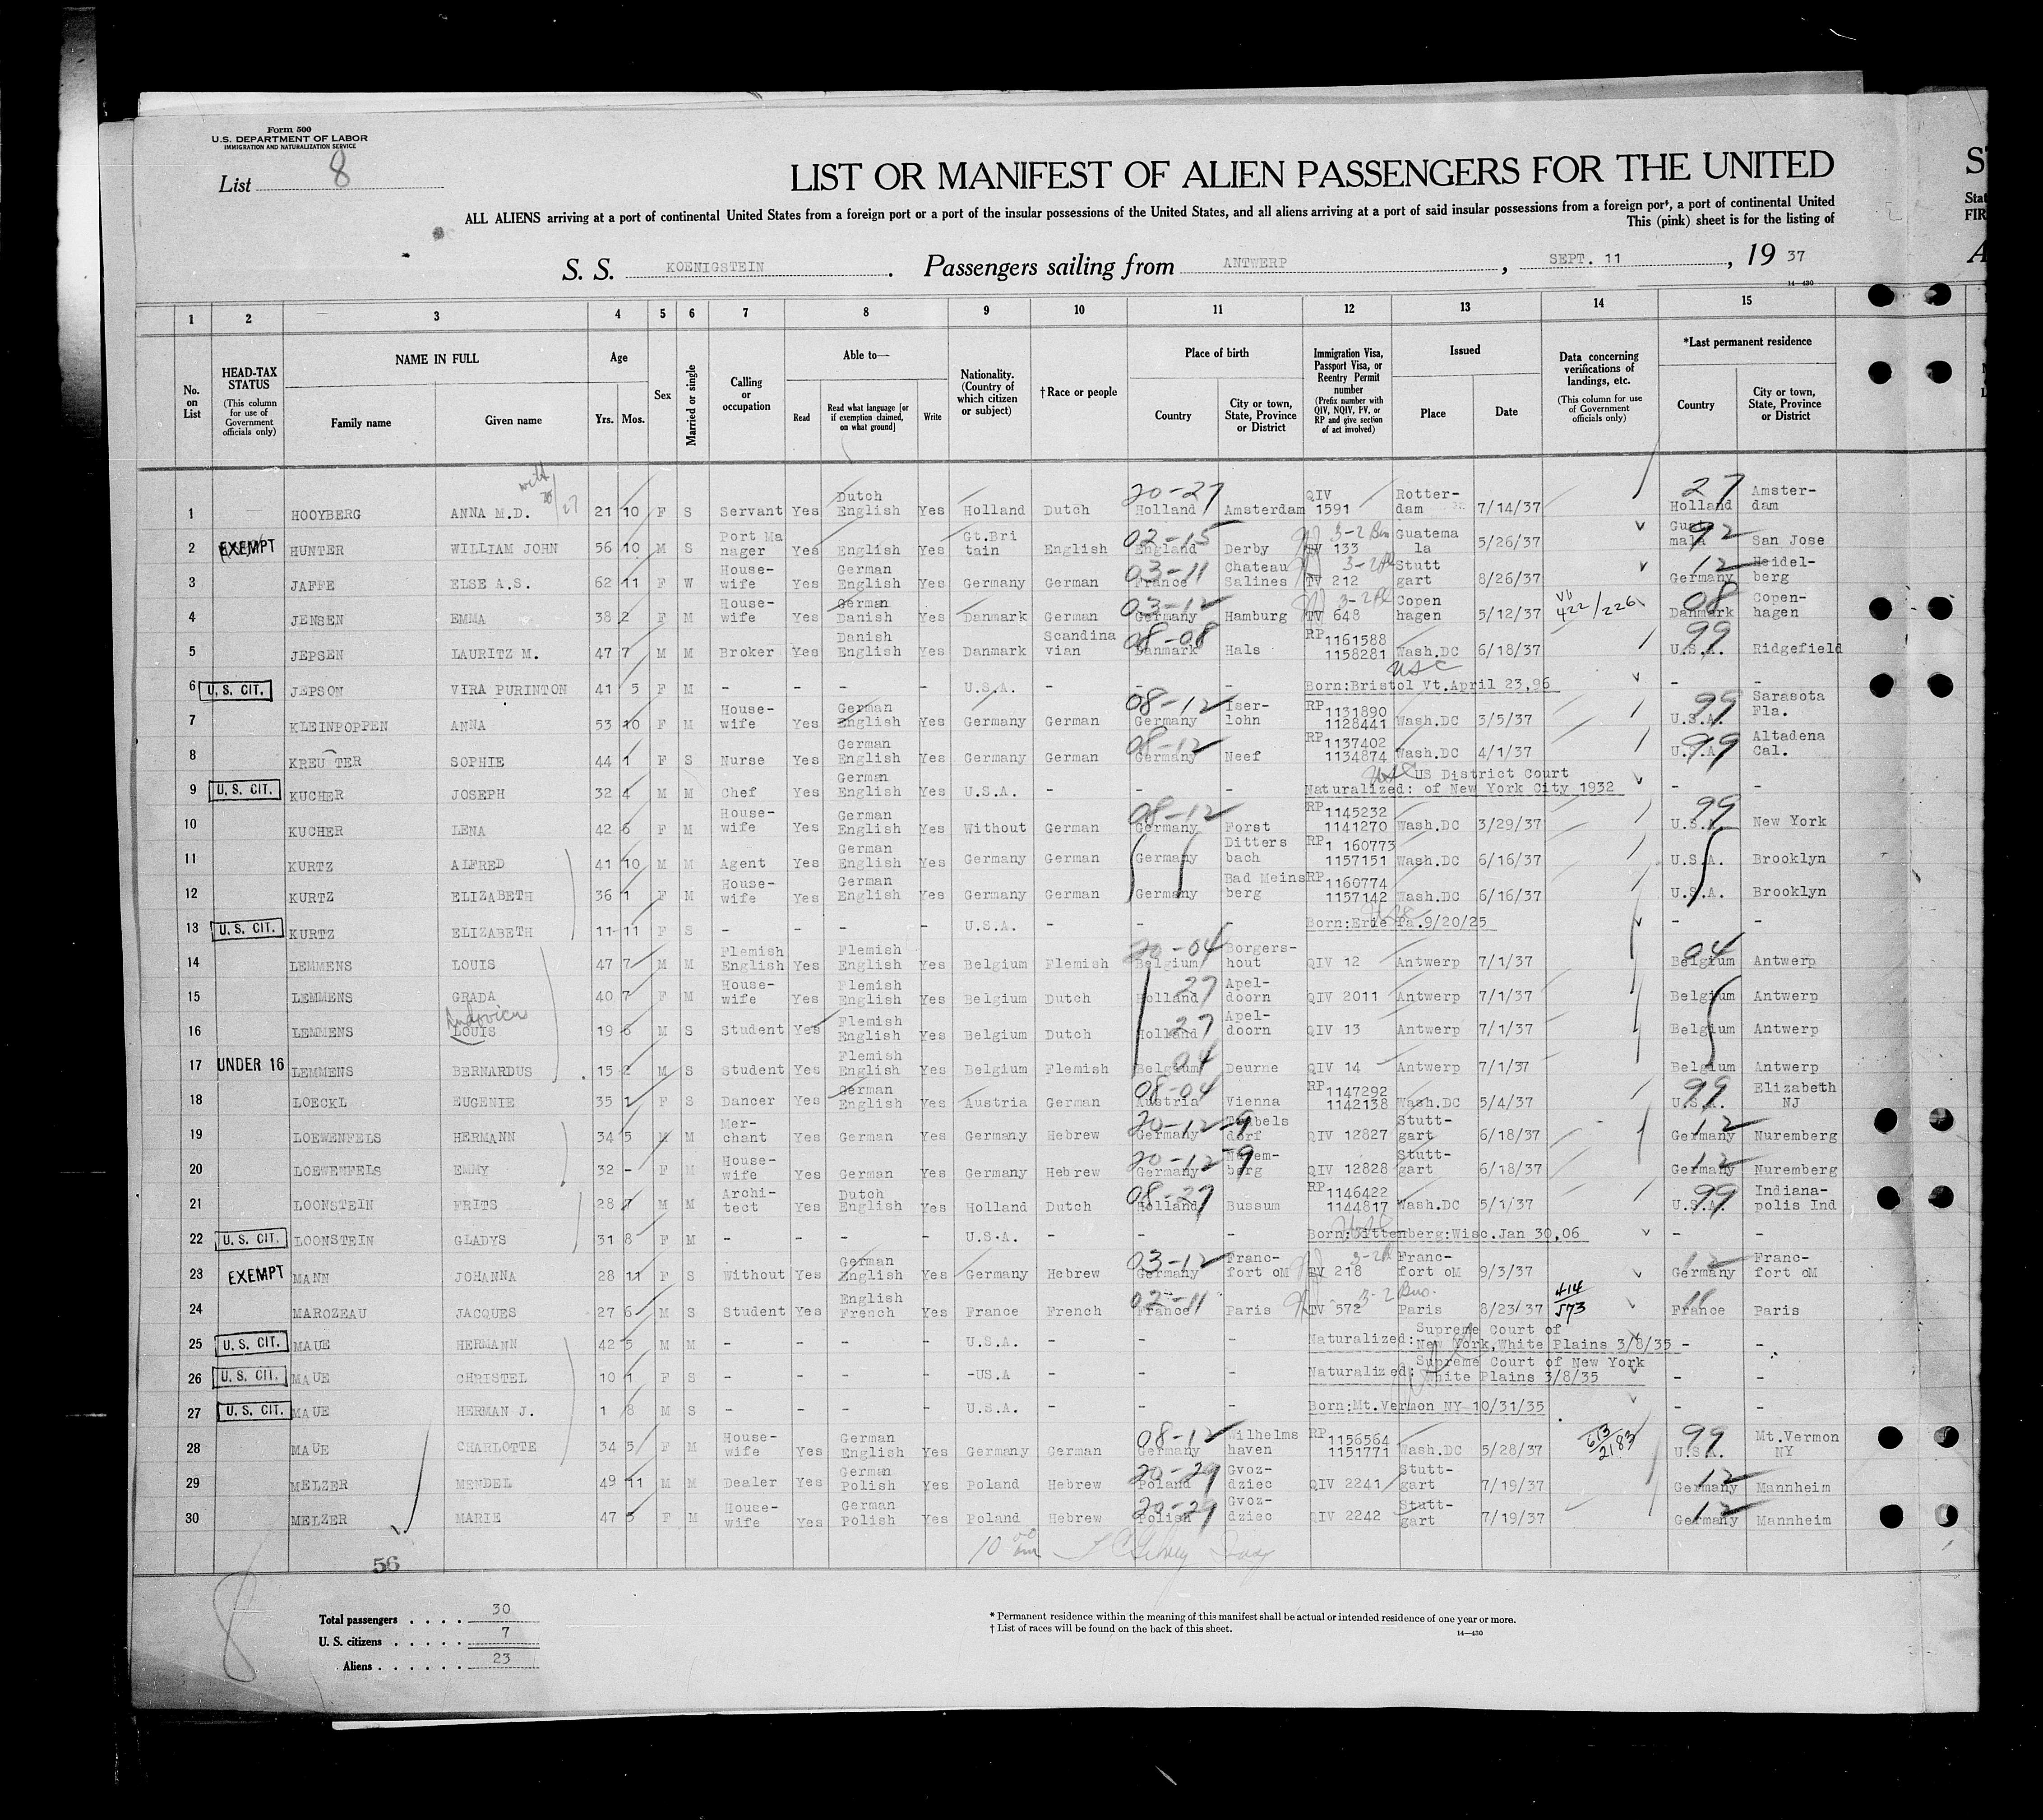 Form 500
U.S. DEPARTMENT OF LABOR
IMMIGRATION AND NATURALIZATION SERVICE
List 8
LIST OR MANIFEST OF ALIEN PASSENGERS FOR THE UNITED
ALL ALIENS arriving at a port of continental United States from a foreign port or a port of the insular possessions of the United States, and all aliens arriving at a port of said insular possessions from a foreign port, a port of continental United
This (pink) sheet is for the listing of
S. S. KOENIGSTEIN. Passengers sailing from ANTWERP, SEPT. 11, 19 37
14—430
1 2 3 4 5 6 7 8 9 10 11 12 13 14 15
No. on List
HEAD-TAX STATUS (This column for use of Government officials only)
NAME IN FULL Family name Given name
Age Yrs. Mos.
Sex
Married or single
Calling or occupation
Able to— Read Read what language [or if exemption claimed, on what ground] Write
Nationality. (Country of which citizen or subject)
†Race or people
Place of birth Country City or town, State, Province or District
Immigration Visa, Passport Visa, or Reentry Permit number (Prefix number with QIV, NQIV, PV, or RP and give section of act involved)
Issued Place Date
Data concerning verifications of landings, etc. (This column for use of Government officials only)
*Last permanent residence Country City or town, State, Province or District
1 HOOYBERG ANNA M.D. 21 10 F S Servant Yes Dutch English Yes Holland Dutch 20-27 Holland Amsterdam QIV 1591 Rotter-dam 7/14/37 27 Holland Amster-dam
2 EXEMPT HUNTER WILLIAM JOHN 56 10 M S Port Manager Yes English Yes Gt.Britain English 02-15 England Derby TV 133 3-2 Bus Guatemala 5/26/37 92 Guatmala San Jose
3 JAFFE ELSE A.S. 62 11 F W House-wife Yes German English Yes Germany German 03-11 France Chateau Salines TV 212 3-2 Pl Stuttgart 8/26/37 12 Germany Heidel-berg
4 JENSEN EMMA 38 2 F M House-wife Yes German Danish Yes Danmark German 03-12 Germany Hamburg TV 648 3-2 Pl Copenhagen 5/12/37 422/226 08 Danmark Copen-hagen
5 JEPSEN LAURITZ M. 47 7 M M Broker Yes Danish English Yes Danmark Scandinavian 08-08 Danmark Hals RP 1161588 1158281 Wash.DC 6/18/37 99 U.S.A. Ridgefield
6 U. S. CIT. JEPSON VIRA PURINTON 41 5 F M - - - - U.S.A. - - - USC Born:Bristol Vt.April 23,96 - -
7 KLEINPOPPEN ANNA 53 10 F M House-wife Yes German English Yes Germany German 08-12 Germany Iser-lohn RP 1131890 1128441 Wash.DC 3/5/37 99 U.S.A. Sarasota Fla.
8 KREU TER SOPHIE 44 1 F S Nurse Yes German English Yes Germany German 08-12 Germany Neef RP 1137402 1134874 Wash.DC 4/1/37 99 U.S.A. Altadena Cal.
9 U. S. CIT. KUCHER JOSEPH 32 4 M M Chef Yes German English Yes U.S.A. - - - USC US District Court Naturalized: of New York City 1932 - -
10 KUCHER LENA 42 6 F M House-wife Yes German English Yes Without German 08-12 Germany Forst RP 1145232 1141270 Wash.DC 3/29/37 99 U.S.A. New York
11 KURTZ ALFRED 41 10 M M Agent Yes German English Yes Germany German Germany Dittersbach RP 1 160773 1157151 Wash.DC 6/16/37 U.S.A. Brooklyn
12 KURTZ ELIZABETH 36 1 F M House-wife Yes German English Yes Germany German Germany Bad Meinsberg RP 1160774 1157142 Wash.DC 6/16/37 U.S.A. Brooklyn
13 U. S. CIT. KURTZ ELIZABETH 11-11 F S - - - - U.S.A. - - - Born:Erie Pa.9/20/25 - -
14 LEMMENS LOUIS 47 7 M M Flemish English Yes Flemish English Yes Belgium Flemish 20-04 Belgium Borgers-hout QIV 12 Antwerp 7/1/37 04 Belgium Antwerp
15 LEMMENS GRADA 40 7 F M House-wife Yes Flemish English Yes Belgium Dutch 27 Holland Apel-doorn QIV 2011 Antwerp 7/1/37 Belgium Antwerp
16 LEMMENS Ludovicus LOUIS 19 6 M S Student Yes Flemish English Yes Belgium Dutch 27 Holland Apel-doorn QIV 13 Antwerp 7/1/37 Belgium Antwerp
17 UNDER 16 LEMMENS BERNARDUS 15 2 M S Student Yes Flemish English Yes Belgium Flemish 04 Belgium Deurne QIV 14 Antwerp 7/1/37 Belgium Antwerp
18 LOECKL EUGENIE 35 1 F S Dancer Yes German English Yes Austria German 08-04 Austria Vienna RP 1147292 1142138 Wash.DC 5/4/37 99 U.S.A. Elizabeth NJ
19 LOEWENFELS HERMANN 34 5 M M Mer-chant Yes German Yes Germany Hebrew 20-12-9 Germany dorf QIV 12827 Stutt-gart 6/18/37 12 Germany Nuremberg
20 LOEWENFELS EMMY 32 - F M House-wife Yes German Yes Germany Hebrew 20-12-9 Germany Nurem-berg QIV 12828 Stutt-gart 6/18/37 12 Germany Nuremberg
21 LOONSTEIN FRITS 28 7 M M Archi-tect Yes Dutch English Yes Holland Dutch 08-27 Holland Bussum RP 1146422 1144817 Wash.DC 5/1/37 99 U.S.A. Indiana-polis Ind
22 U. S. CIT. LOONSTEIN GLADYS 31 8 F M - - - - U.S.A. - - - Born:Wittenberg:Wisc.Jan 30,06 - -
23 EXEMPT MANN JOHANNA 28 11 F S Without Yes German English Yes Germany Hebrew 03-12 Germany Franc-fort oM TV 218 3-2 Pl Franc-fort oM 9/3/37 12 Germany Franc-fort oM
24 MAROZEAU JACQUES 27 6 M S Student Yes English French Yes France French 02-11 France Paris TV 572 3-2 Bus. Paris 8/23/37 414/573 11 France Paris
25 U. S. CIT. MAUE HERMANN 42 5 M M - - - - U.S.A. - - - Naturalized: Supreme Court of New York,White Plains 3/8/35 - -
26 U. S. CIT. MAUE CHRISTEL 10 1 F S - - - - -US.A - - - Naturalized: Supreme Court of New York White Plains 3/8/35 - -
27 U. S. CIT. MAUE HERMAN J. 1 8 M S - - - - U.S.A. - - - Born:Mt.Vermon NY 10/31/35 - -
28 MAUE CHARLOTTE 34 5 F M House-wife Yes German English Yes Germany German 08-12 Germany Wilhelmshaven RP 1156564 1151771 Wash.DC 5/28/37 613/2183 99 U.S.A. Mt.Vermon NY
29 MELZER MENDEL 49 11 M M Dealer Yes German Polish Yes Poland Hebrew 20-29 Poland Gvoz-dziec QIV 2241 Stutt-gart 7/19/37 12 Germany Mannheim
30 MELZER MARIE 47 5 F M House-wife Yes German Polish Yes Poland Hebrew 20-29 Polish Gvoz-dziec QIV 2242 Stutt-gart 7/19/37 12 Germany Mannheim
56
8
Total passengers . . . . 30
U. S. citizens . . . . . 7
Aliens . . . . . . 23
* Permanent residence within the meaning of this manifest shall be actual or intended residence of one year or more.
† List of races will be found on the back of this sheet.
14—430